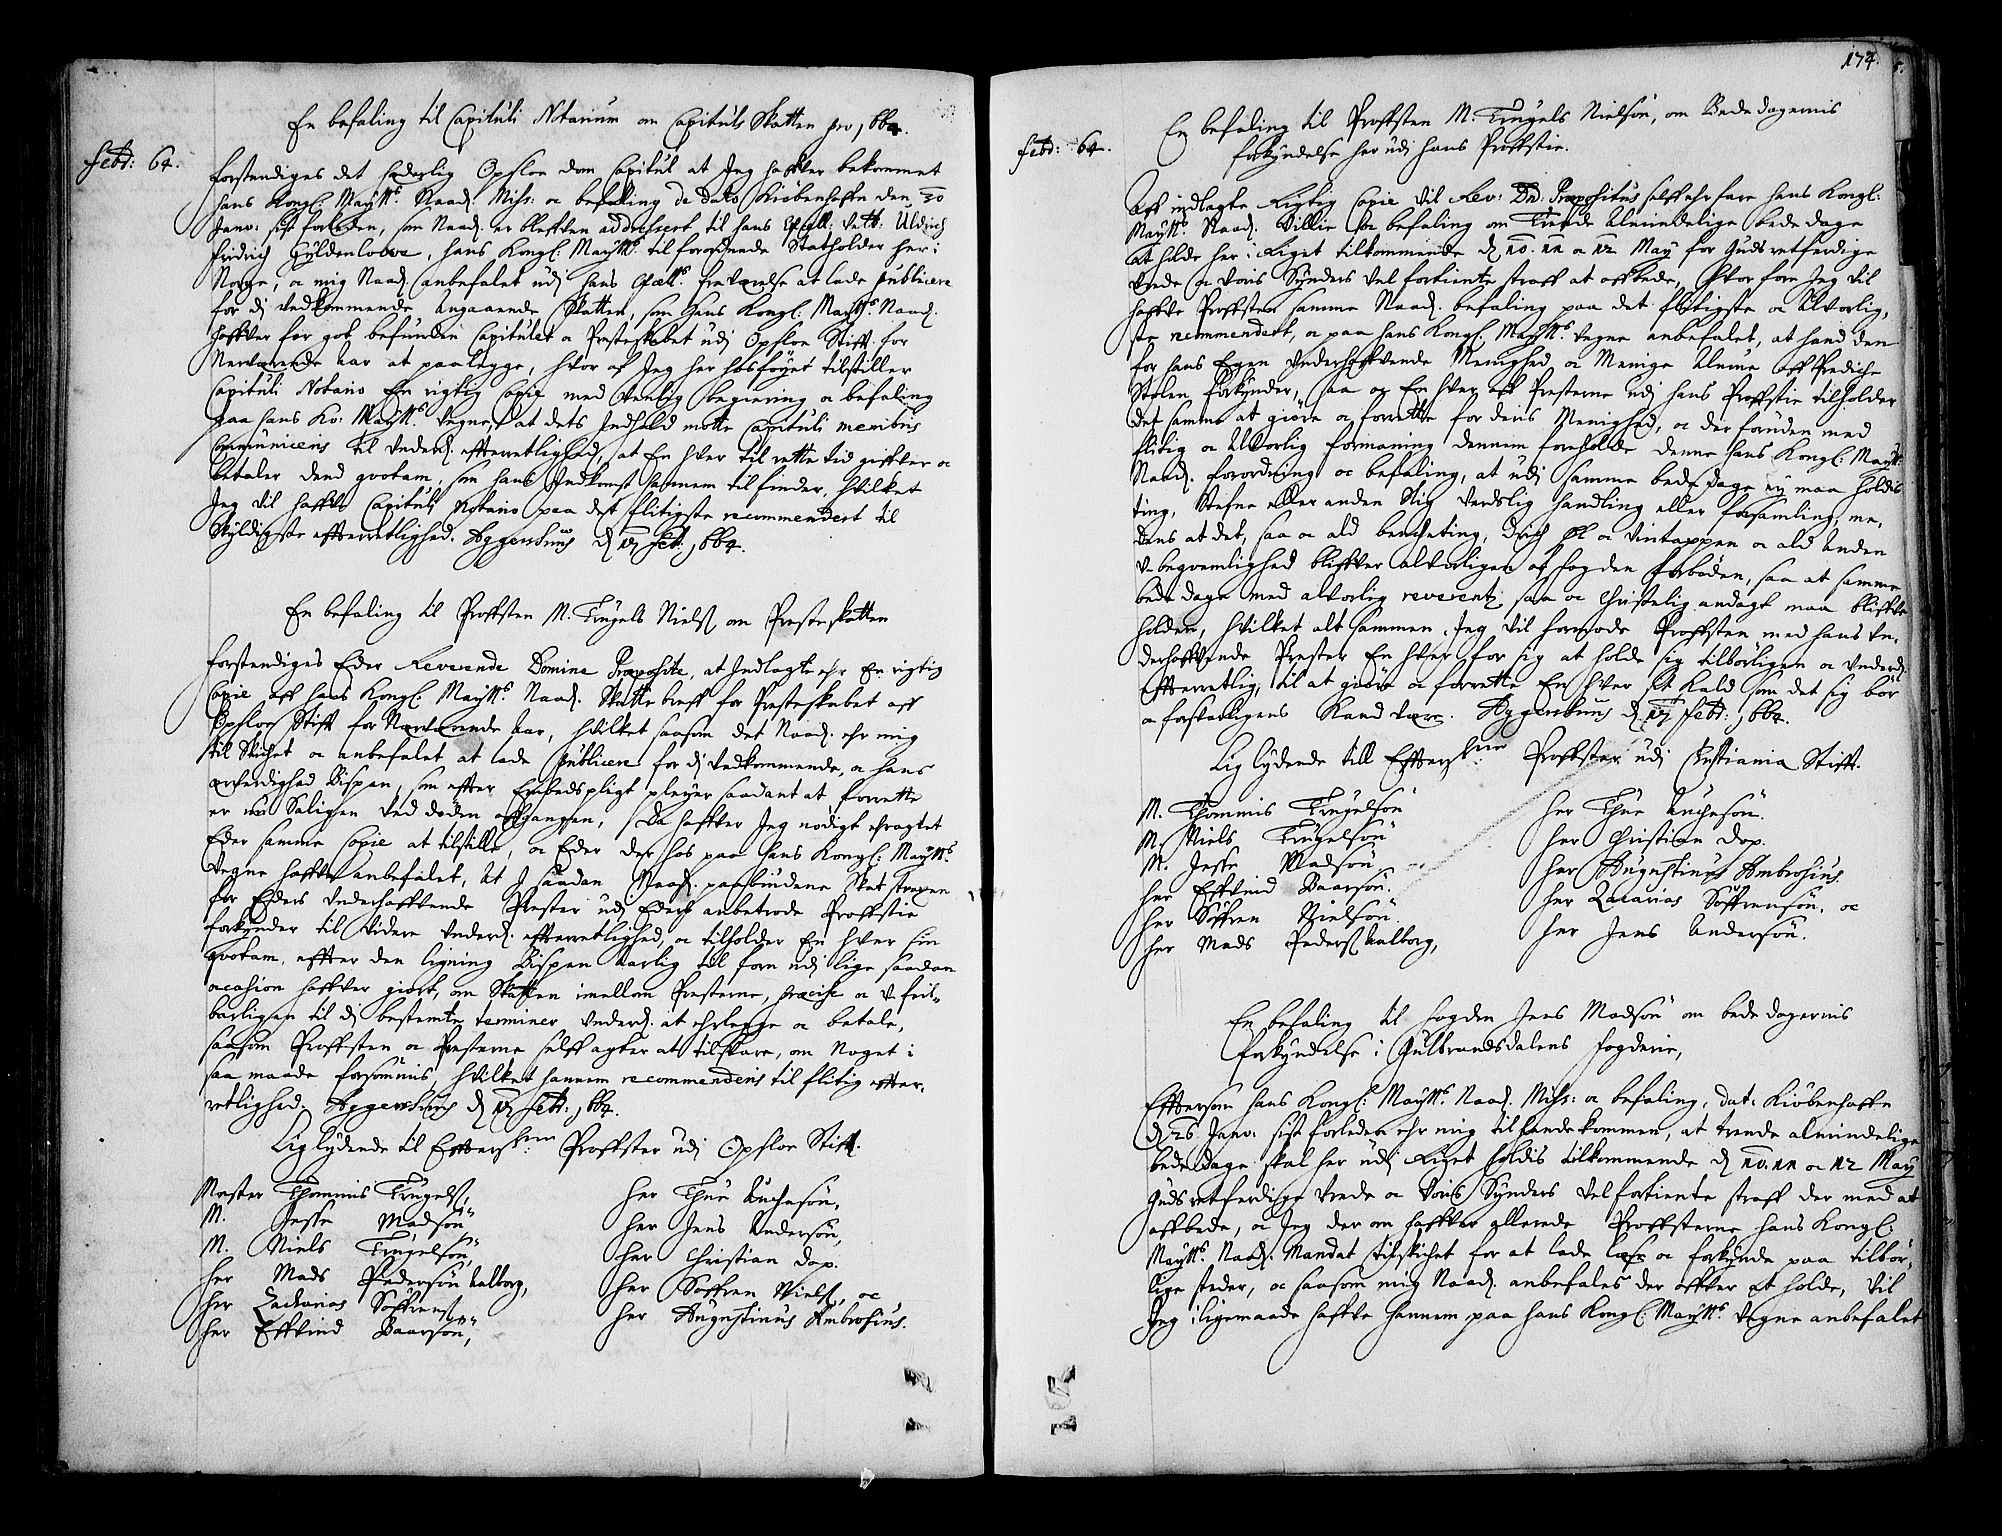 En befaling til Capituli Notarium om Capituls Skatten pro 1664.
Febr: 64.
Forstendiges det hæderlig Opsloe dom Capitul at Jeg haffver bekommet
hans Kongl: Maytts Naad. Miss: oc befaling de dato Kiøbenhaffn den 30
Janv: sist forleden, som Naad. er bleffven addresseret til hans Excell: Velb: Uldrich
Fridrich Gyldenlowe, hans Kongl: Maytts tilforordnede Statholder her i
Norge, oc mig Naad. anbefalet udj hans fraværelse at lade publicere
for di vedkommende angaaende Skatten, som hans Kongl: Maytts Naad.
haffver for got befunden Capitulet oc Presteskabet udj Opsloe Stift for
Nerværende Aar at paalegge, hvor af Jeg her hosføyet tilstiller
Capituli Notario En rigtig Copie med venlig begiering oc befaling
paa hans Ko: Maytts Vegne, at dets Indhold motte Capituli membris
Communiceris til underd. effterretlighed, at En hver til rette tid giffver oc
betaler dend qvotam, som hans Indkomst hannem tilfinder, hvilket
Jeg vil haffve Capituli Notario paa det flitigste recommendert til
skyldigste effterretlighed. Aggershuus d 17 Feb: 1664.
En befaling til Proffsten M. Trugels Niels om Presteskatten
Forstendiges Eder Reverende Domine Præposite, at Indlagte ehr En rigtig
Copie aff hans Kongl: Maytts Naad. Skatte breff for Presteskabet aff
Opsloe Stift for Nerværende Aar, hvilket saasom det Naad. ehr mig
til skichet oc anbefalet at lade publicere for di vedkommende, oc hans
ærværdighed Bispen, som effter Embedspligt pleyer saadant at forrette
er nu Saligen ved døden affgangen, Da haffver Jeg nødigt eragtet
Eder samme Copie at tilstille, oc Eder der hos paa hans Kongl: Maytts
Vegne haffve anbefalet, at I saadan Naad. paabudene Skat straxen
for Eders underhaffvende Prester udj Eders anbetrode Proffstie
forkynder til videre underd. effterretlighed, oc tilholder En hver sin
qvotam, effter den ligning Bispen aarlig til forn udj lige saadan
ocasion haffver giort, om Skatten imellom Presterne, præcise oc u-feil-
barligen til di bestemte terminer underd. at erlegge oc betale,
saasom Proffsten oc Presterne self agter at tilsvare, om Noget i
saa maade forsømmis, hvilket hannem recommenderis til flitig effter-
retlighed. Aggershuus d 17 Feb: 1664.
Lig lydende til Effterskrne: Proffster udj Opsloe Stift.
Mester Thommis Trugels,
M. Jesse Madsøn,
M. Niels Trugelsøn,
her Mads Pedersøn Aalborg,
her Zacharias Søffrens
her Effvind Baarsøn,
her Thue Auchesøn,
her Jens Andersøn,
her Christian Dop.
her Søffren Niels, oc
her Augustinus Ambrosius.
174.
En befaling til Proffsten M. Trugels Nielsøn, om Bede dagernis
forkyndelse her udj hans Proffstie.
Febr: 64.
Aff indlagte Rigtig Copie vil Rev: Dn. Præpositus selff ehrfare hans Kongl:
Maytts Naad. Villie oc befaling om Trende Almindelige bede dage
at holde her i Riget tilkommende d 10. 11 oc 12 May for Guds retferdige
vrede oc voris Synders velfortiente straff at affbede, hvor fore Jeg vil
haffve Proffsten samme Naad. befaling paa det flitigste oc Alvorlig-
ste recommendert, oc paa hans Kongl: Maytts Vegne anbefalet, at hand den
for hans Egen underhaffvende Menighed oc Menige Almue aff Prediche
Stolen forkynder, saa og En hver aff Presterne udj hans Proffstie tilholder
det samme at giøre oc forrette for deris Menighed, oc der foruden med
flitig oc Alvorlig formaning dennem foreholde denne hans Kongl: Maytts
Naad. forordning oc befaling, at udj samme bede dage ey maa holdis
ting, Stefne eller anden Slig verdslig handling eller forsamling, me-
dens at det, saa oc ald beværting, drich Øl oc vintappen oc ald Anden
u-beqvemlighed bliffver alvorligen af Fogden forboden, saa at samme
bede dage med alvorlig reverentz saa oc Christelig andagt maa bliffve
holden, hvilket alt sammen Jeg vil formode Proffsten med hans un-
derhaffvende Prester En hver for sig at holde sig tilbørligen oc underd.
effterretlig, til at giøre oc forrette En hver sit Kald som det sig bør
oc forsvarligens kand være. Aggershuus d 17 Febr: 1664.
Lig lydende till Effterskrne: Proffster udj Christiania Stift.
M. Thommis Trugelsøn
M. Niels Trugelsøn
M. Jesse Madsøn
her Effvind Baarsøn.
her Søffren Nielsøn.
her Mads Peders Aalborg,
her Thue Auchesøn.
her Christian Dop.
her Augustinus Ambrosius.
her Zacarias Søffrensøn, oc
her Jens Andersøn.
En befaling til Fogden Jens Madsøn om bede dagernis
forkyndelse i Gulbrandsdalens Fogderie,
Effterson hans Kongl: Maytts Naad. Miss: oc befaling, dat: Kiøbenhaffn
d 26 Janv: sist forleden ehr mig tilhende kommen, at trende almindelige
bededage skal her udj Riget holdis tilkommende d 10. 11 oc 12 May
Guds retferdige vrede oc voris Synders velfortiente straff der med at
affbede, oc Jeg der om haffver allerede Proffsterne hans Kongl:
Maytts Naad. Mandat tilskichet for at lade læse oc forkynde paa tilbør-
lige steder, oc saasom mig Naad. anbefales der offver at holde, vil
Jeg i ligemaade haffve hannem paa hans Kongl: Maytts Vegne anbefalet